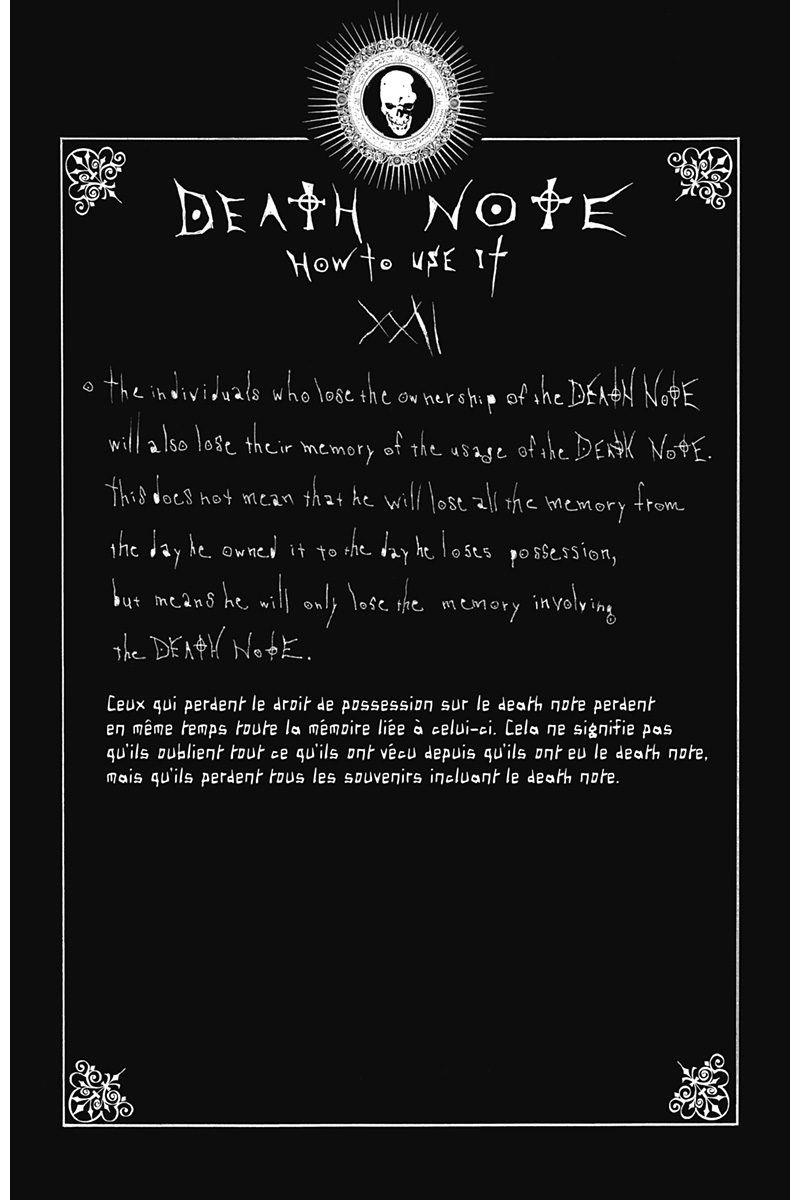 DEATH NOTE
HOW TO USE IT
XXII
◦ The individuals who lose the ownership of the DEATH NOTE
will also lose their memory of the usage of the DEATH NOTE.
This does not mean that he will lose all the memory from
the day he owned it to the day he loses possession,
but means he will only lose the memory involving
the DEATH NOTE.
Ceux qui perdent le droit de possession sur le death note perdent
en même temps toute la mémoire liée à celui-ci. Cela ne signifie pas
qu'ils oublient tout ce qu'ils ont vécu depuis qu'ils ont eu le death note,
mais qu'ils perdent tous les souvenirs incluant le death note.